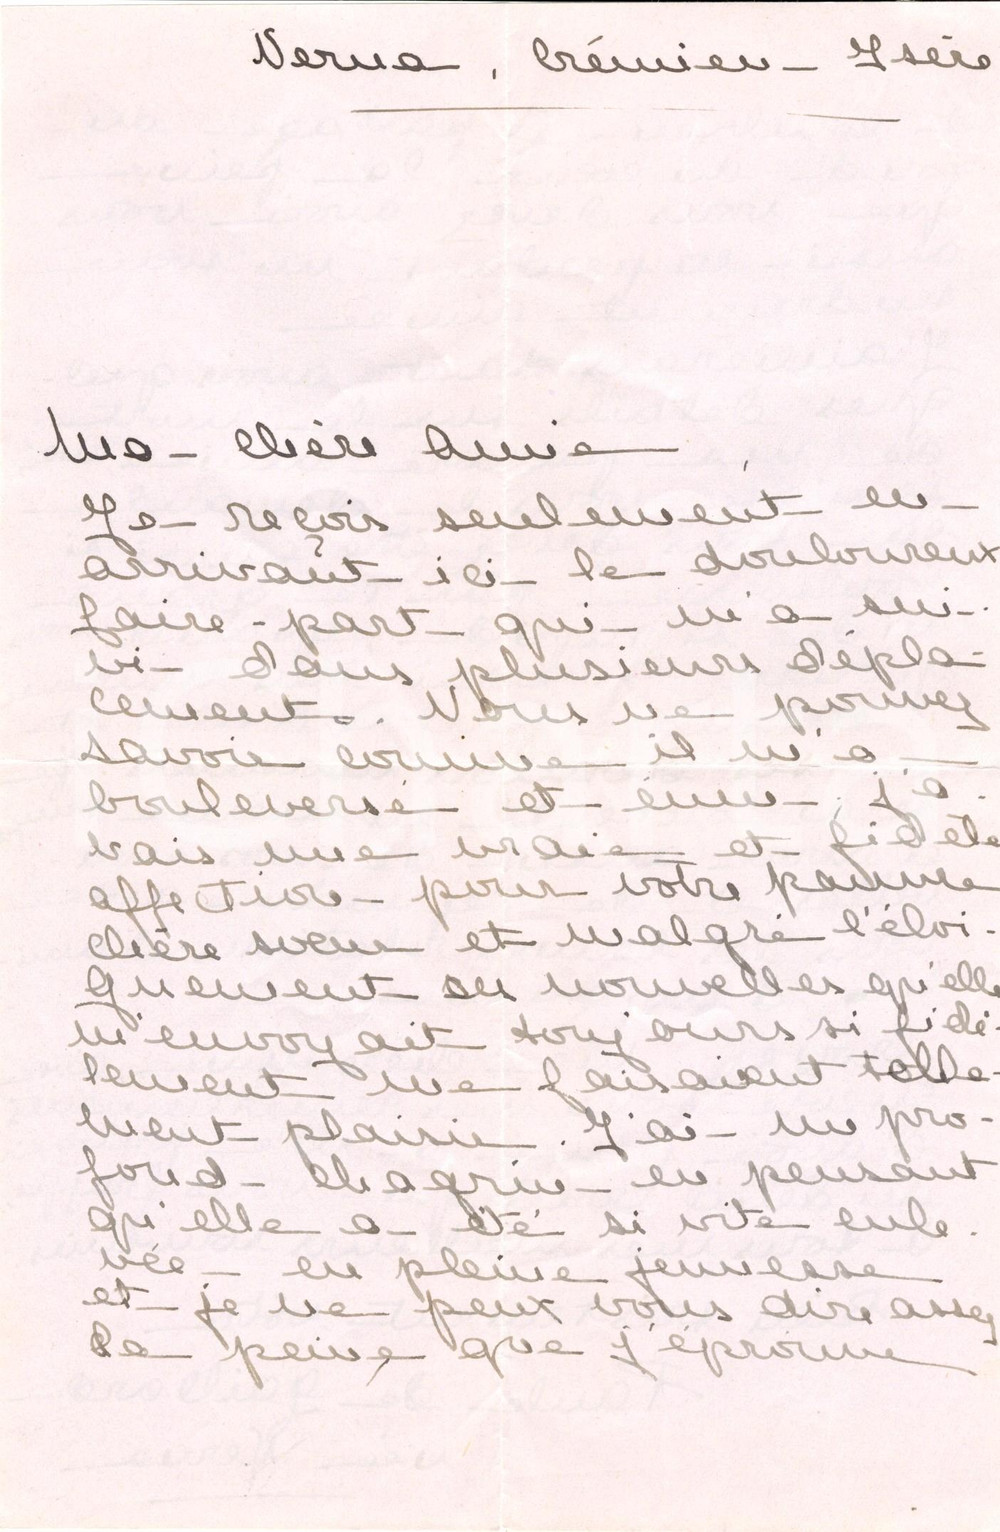 Verna, Crémieu - Isère
Ma chère Amie,
Je reçois seulement en
arrivant ici le douloureux
faire-part qui m'a sui-
vi dans plusieurs dépla-
cements. Vous ne pouvez
savoir comme il m'a
bouleversé et ému. j'a-
vais une vraie et fidèle
affection pour votre pauvre
chère soeur et malgré l'éloi-
gnement ses nouvelles qu'elle
m'envoyait toujours si fidè-
lement me faisaient telle-
ment plaisir. J'ai un pro-
fond chagrin en pensant
qu'elle a été si vite enle-
vée en pleine jeunesse
et je ne peux vous dire assez
la peine que j'éprouve